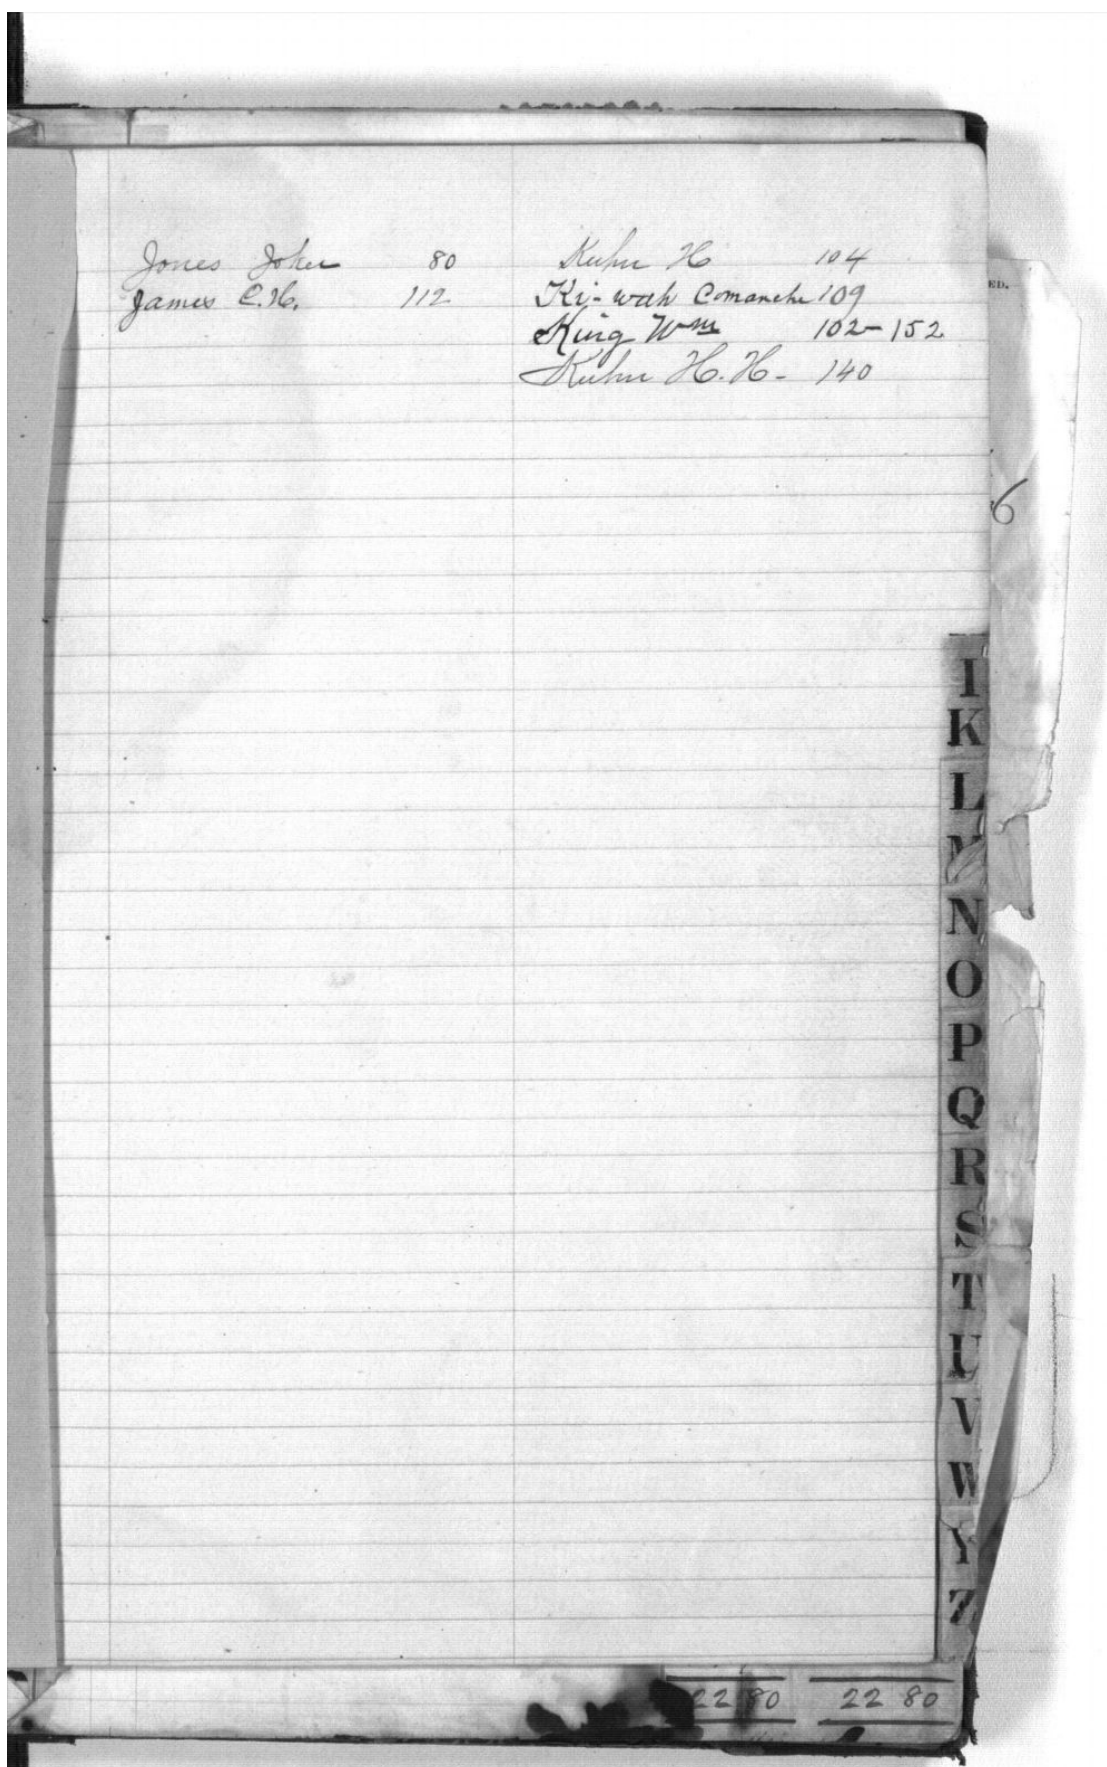 Jones Joker 80
James C. H. 112
Kuhn H 104
Ki-wah Comanche 109
King Wm 102-152
Kuhn H. H. - 140
ED.
6
I
K
L
N
O
P
Q
R
S
T
U
V
W
Y
Z
22 80 22 80